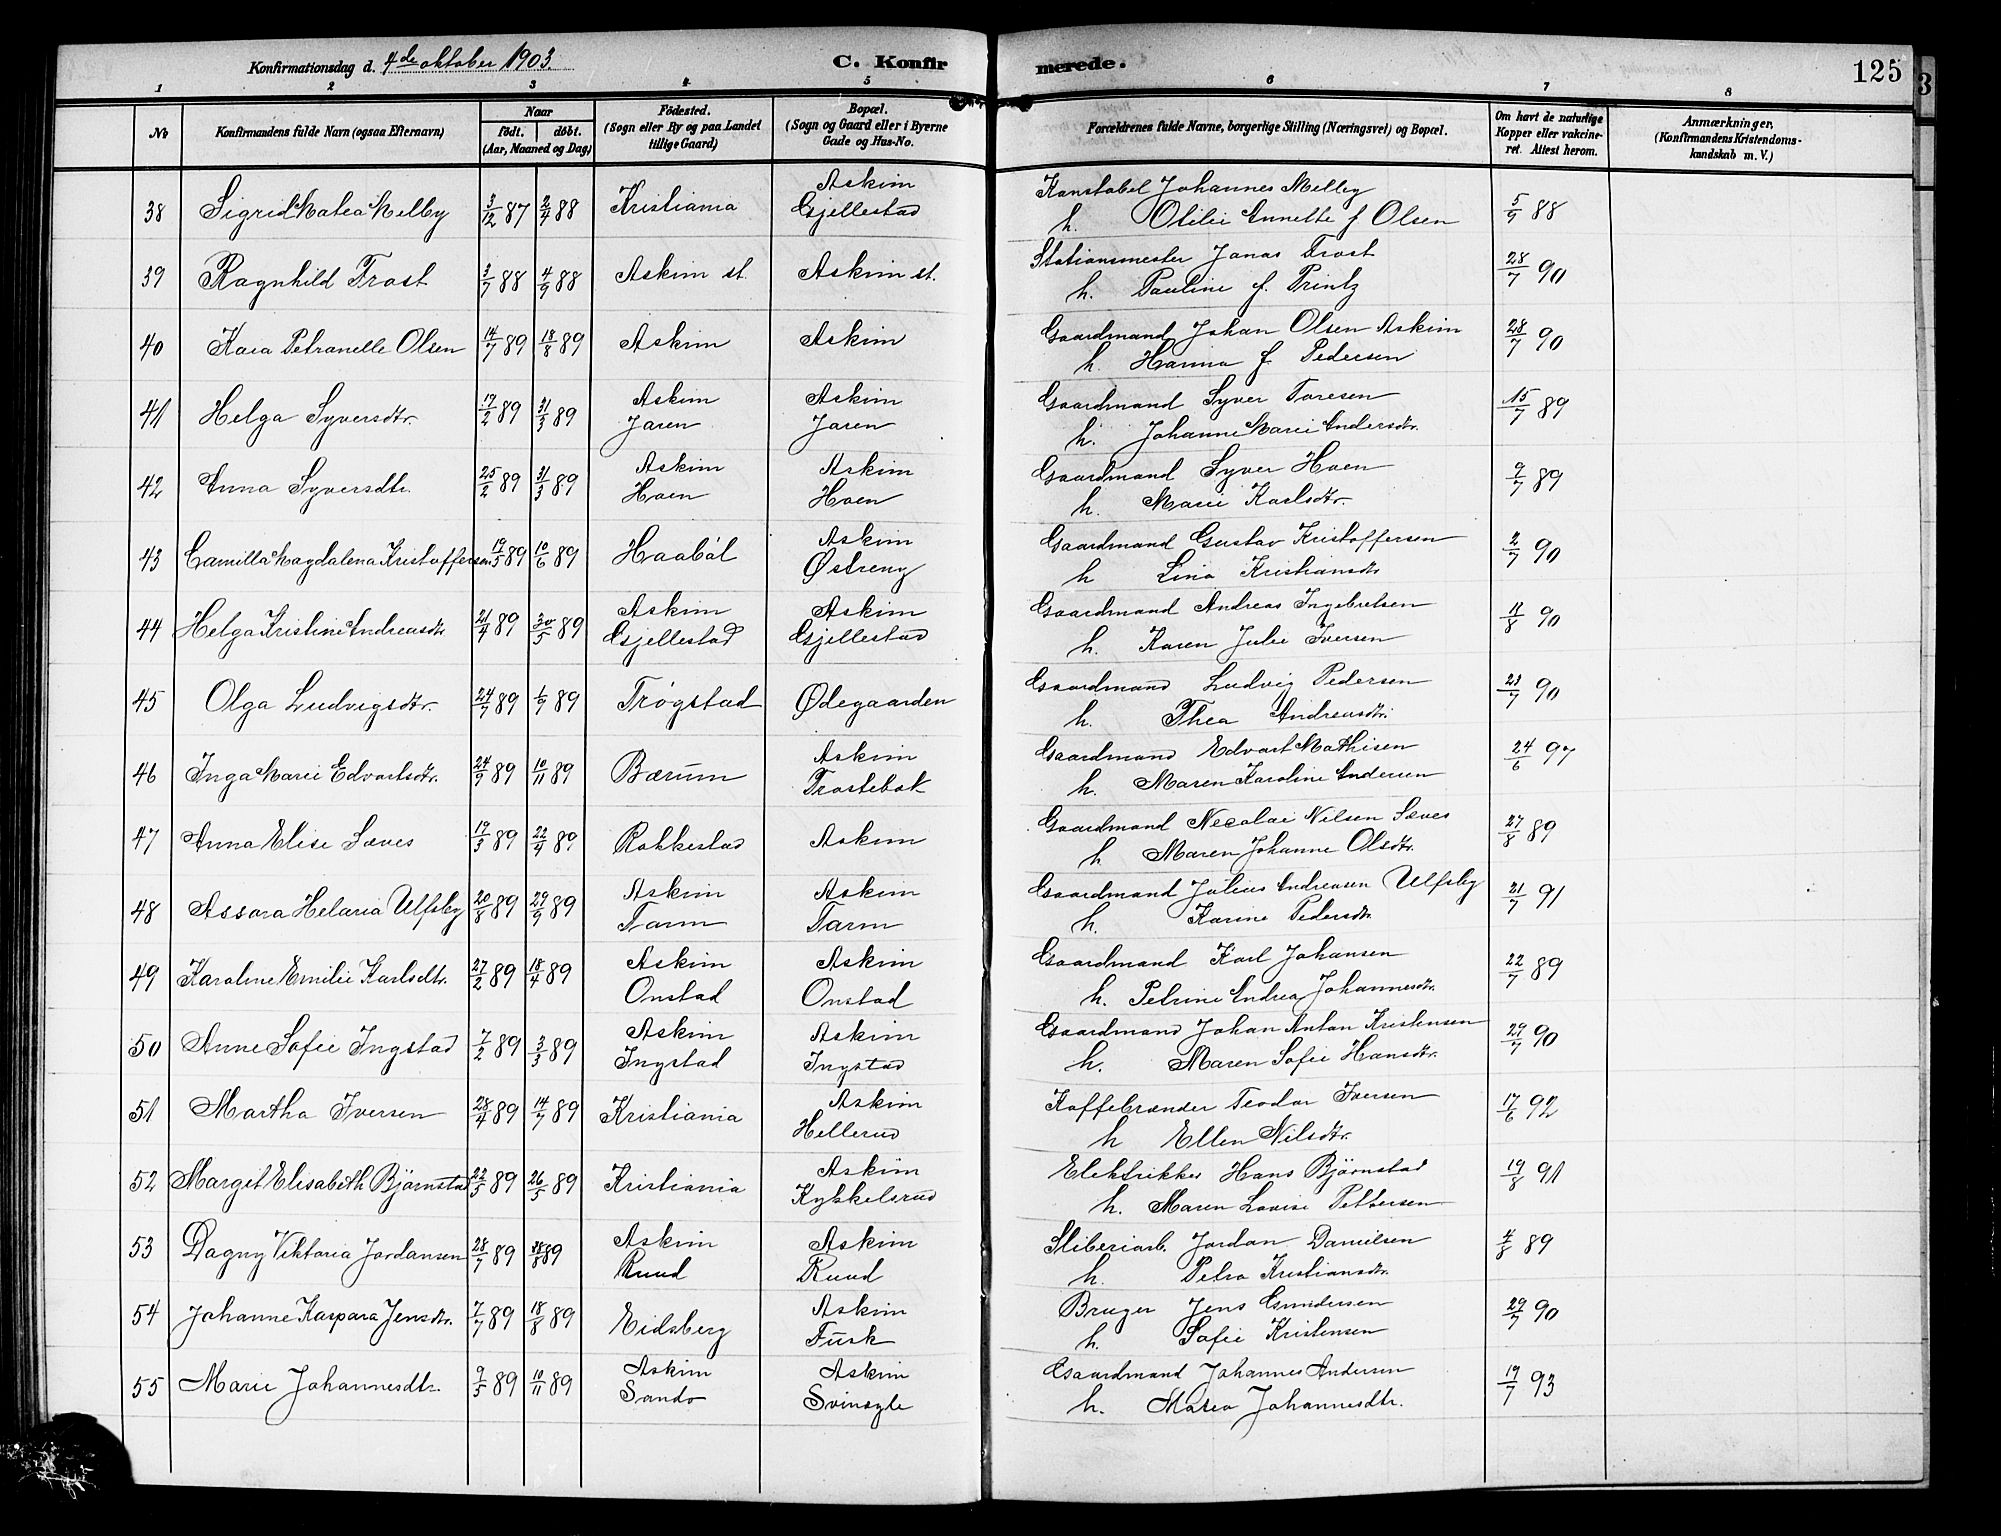 Konfirmationsdag d. 4de oktober 1903.
C. Konfirmerede.
125
1 2 3 4 5 6 7 8
No
Konfirmandens fulde Navn (ogsaa Efternavn)
Naar
födt. döbt.
(Aar, Maaned og Dag)
Födested.
(Sogn eller By og paa Landet
tillige Gaard)
Bopæl.
(Sogn og Gaard eller i Byerne
Gade og Hus-No.
Forældrenes fulde Navne, borgerlige Stilling (Næringsvei) og Bopæl.
Om havt de naturlige
Kopper eller vakcine-
ret. Attest herom.
Anmærkninger,
(Konfirmandens Kristendoms-
kundskab m. V.)
38 Sigrid Matea Melby 3/12 87 2/4 88 Kristiania Askim Gjellestad Konstabel Johannes Melby
h. Otilie Annette f Olsen 5/9 88
39 Ragnhild Trost 3/7 88 4/9 88 Askim st. Askim st. Stationsmester Jonas Trost
h. Pauline f. Printz 28/7 90
40 Kaia Petranelle Olsen 14/7 89 18/8 89 Askim Askim Gaardmand Johan Olsen Askim
h. Hanna f Pedersen 28/7 90
41 Helga Syversdtr. 19/2 89 31/3 89 Askim Jaren Askim Jaren Gaardmand Syver Toresen
h. Johanne Marie Andersdtr. 15/7 89
42 Anna Syversdtr. 25/2 89 31/3 89 Askim Hoen Askim Hoen Gaardmand Syver Hoen
h. Marie Karlsdtr. 9/7 89
43 Camilla Magdalena Kristoffersen 19/5 89 10/6 89 Haaböl Askim Østreng Gaardmand Gustav Kristoffersen
h Lina Kristiansdtr 2/7 90
44 Helga Kristine Andreasdtr. 21/4 89 30/5 89 Askim Gjellestad Askim Gjellestad Gaardmand Andreas Ingebretsen
h. Karen Julie Iversen 11/8 90
45 Olga Ludvigsdtr. 24/7 89 1/9 89 Trøgstad Ødegaarden Gaardmand Ludvig Pedersen
h. Thea Andreasdtr. 23/7 90
46 Inga Marie Edvartsdtr. 24/9 89 10/11 89 Bærum Askim Trostebak Gaardmand Edvart Mathisen
h. Maren Karoline Andersen 24/6 97
47 Anna Elise Sæves 19/3 89 22/4 89 Rakkestad Askim Gaardmand Necolai Nilsen Sæves
h Maren Johanne Olsdtr. 27/8 89
48 Assora Helaria Ulfsby 20/8 89 29/9 89 Askim Tarm Askim Tarm Gaardmand Julius Andreasen Ulfsby
h. Karine Pedersdtr 21/7 91
49 Karoline Emilie Karlsdtr. 27/2 89 18/4 89 Askim Onstad Askim Onstad Gaardmand Karl Johansen
h. Petrine Andrea Johannesdtr. 22/7 89
50 Anne Sofie Ingstad 7/2 89 3/3 89 Askim Ingstad Askim Ingstad Gaardmand Johan Anton Kristensen
h. Maren Sofie Hansdtr. 29/7 90
51 Martha Iversen 28/4 89 14/7 89 Kristiania Askim Hellerud Kaffebrænder Teodor Iversen
h Ellen Nilsdtr. 17/6 92
52 Margit Elisabeth Bjørnstad 22/5 89 26/5 89 Kristiania Askim Kykkelsrud Elektrikker Hans Bjørnstad
h. Maren Lovise Pettersen 19/8 91
53 Dagny Viktoria Jordansen 28/7 89 18/8 89 Askim Ruud Askim Ruud Sliberiarb. Jordan Danielsen
h. Petra Kristiansdtr. 4/8 89
54 Johanne Kaspara Jensdtr. 7/7 89 18/8 89 Eidsberg Askim Fusk Bruger Jens Gundersen
h. Sofie Kristensen 29/7 90
55 Marie Johannesdtr. 9/5 89 10/11 89 Askim Sando Askim Svinøgle Gaardmand Johannes Andersen
h. Matea Johannesdtr. 19/7 93